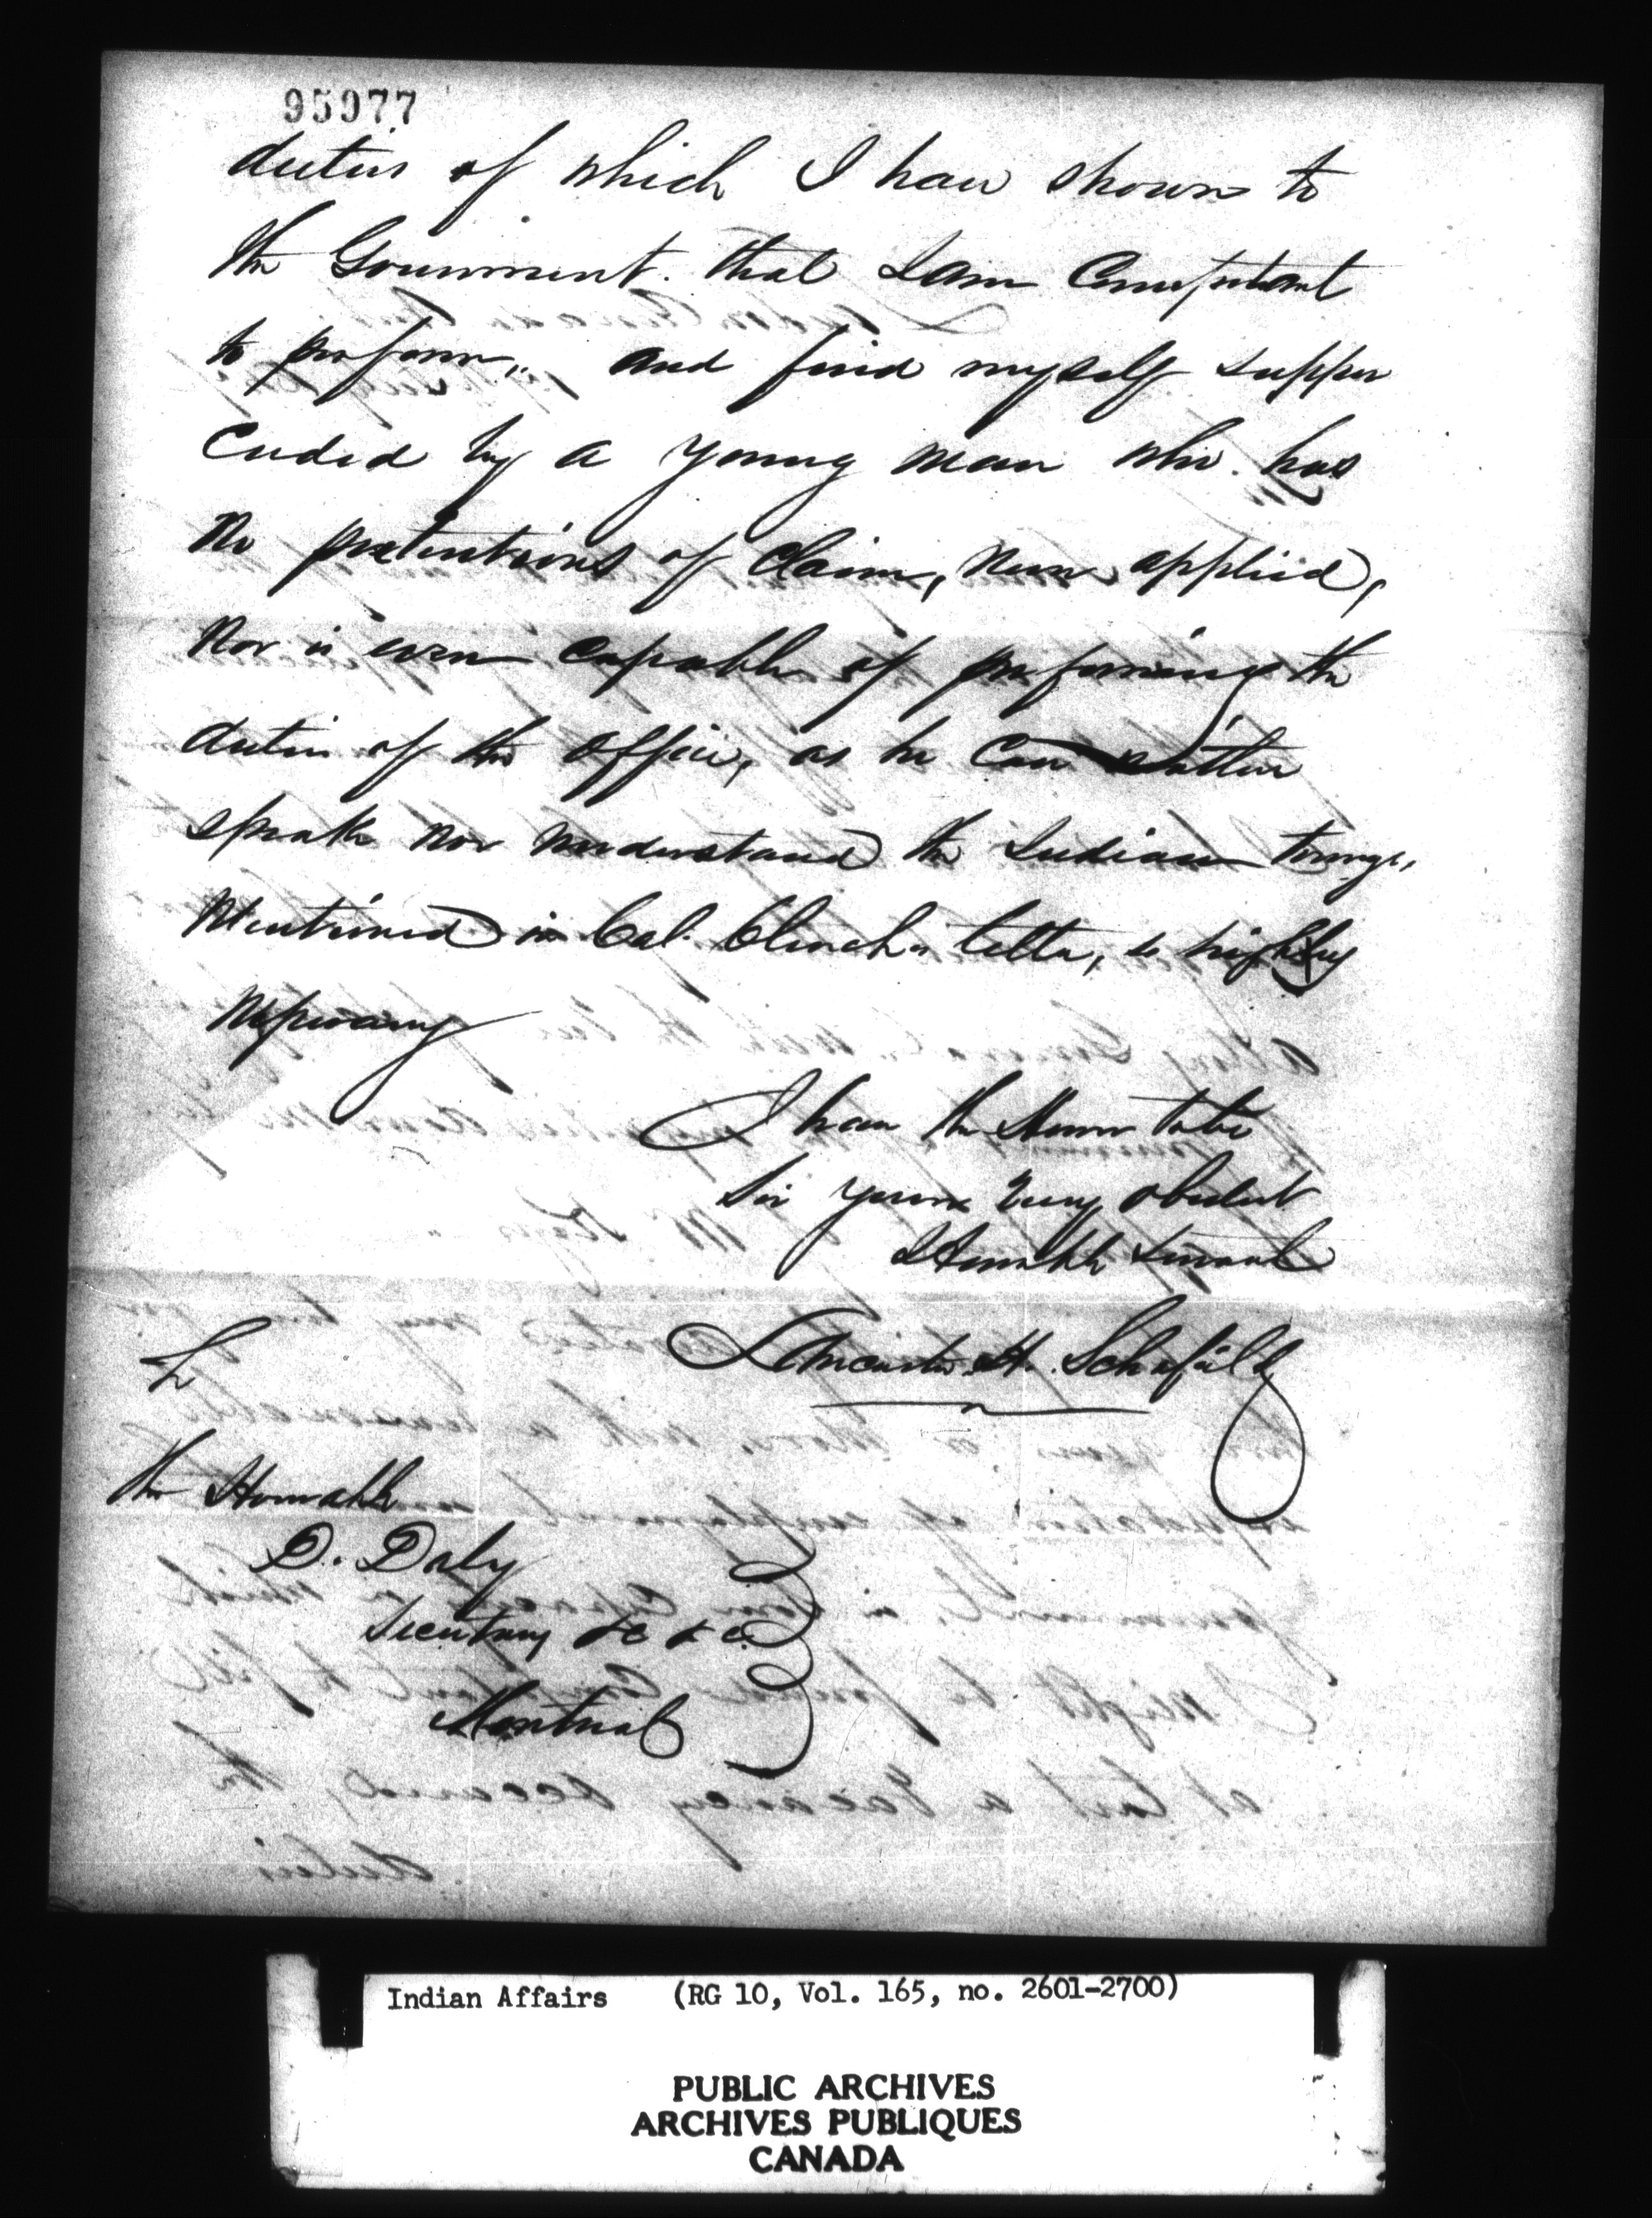 95977
duties of which I have shown to
the Government. that I am Compitant
to preform,, and find myself supper
ceeded by a young man who. has
no pretentions of Claim, never applied,
nor is even capable of preforming the
duties of the office, as he can neither
speak nor understand the Indian tounge,
Mentioned in Col. Clench's letter, so highly
nessary
I have the Honor to be
Sir your very obedient
Humble Servant
Lancaster H. Schofield
The Honorable
D. Daly
Secretary &c &c.
Montreal
Indian Affairs (RG 10, Vol. 165, no. 2601-2700)
PUBLIC ARCHIVES
ARCHIVES PUBLIQUES
CANADA